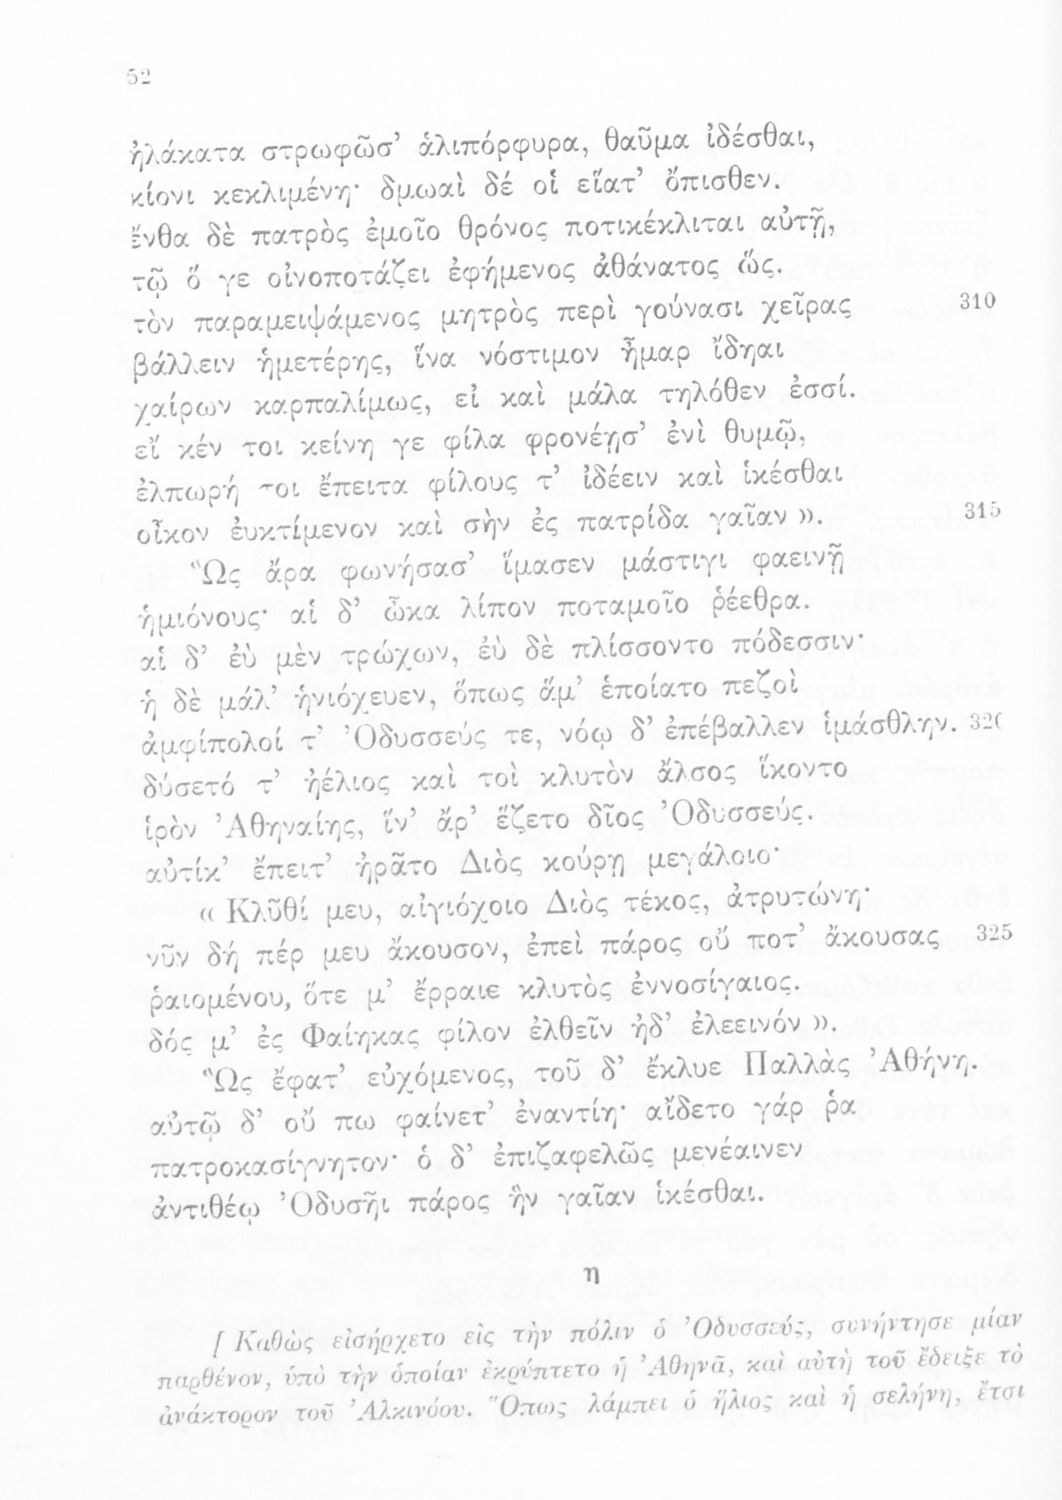 52
ἠλάκατα στρωφῶσ’ ἁλιπόρφυρα, θαῦμα ἰδέσθαι,
κίονι κεκλιμένη· δμωαὶ δέ οἱ εἵατ’ ὄπισθεν.
ἔνθα δὲ πατρὸς ἐμοῖο θρόνος ποτικέκλιται αὐτῇ,
τῷ ὅ γε οἰνοποτάζει ἐφήμενος ἀθάνατος ὥς.
τὸν παραμειψάμενος μητρὸς περὶ γούνασι χεῖρας 310
βάλλειν ἡμετέρης, ἵνα νόστιμον ἦμαρ ἴδηαι
χαίρων καρπαλίμως, εἰ καὶ μάλα τηλόθεν ἐσσί.
εἴ κέν τοι κείνη γε φίλα φρονέῃσ’ ἐνὶ θυμῷ,
ἐλπωρή τοι ἔπειτα φίλους τ’ ἰδέειν καὶ ἱκέσθαι
οἶκον ἐυκτίμενον καὶ σὴν ἐς πατρίδα γαῖαν ». 315
Ὣς ἄρα φωνήσασ’ ἵμασεν μάστιγι φαεινῇ
ἡμιόνους· αἱ δ’ ὦκα λίπον ποταμοῖο ῥέεθρα.
αἱ δ’ ἐὺ μὲν τρώχων, ἐὺ δὲ πλίσσοντο πόδεσσιν·
ἡ δὲ μάλ’ ἡνιόχευεν, ὅπως ἅμ’ ἑποίατο πεζοὶ
ἀμφίπολοί τ’ Ὀδυσσεύς τε, νόῳ δ’ ἐπέβαλλεν ἱμάσθλην. 320
δύσετό τ’ ἠέλιος καὶ τοὶ κλυτὸν ἄλσος ἵκοντο
ἱρὸν Ἀθηναίης, ἵν’ ἄρ’ ἕζετο δῖος Ὀδυσσεύς.
αὐτίκ’ ἔπειτ’ ἠρᾶτο Διὸς κούρῃ μεγάλοιο·
« Κλῦθί μευ, αἰγιόχοιο Διὸς τέκος, ἀτρυτώνη·
νῦν δή πέρ μευ ἄκουσον, ἐπεὶ πάρος οὔ ποτ’ ἄκουσας 325
ῥαιομένου, ὅτε μ’ ἔρραιε κλυτὸς ἐννοσίγαιος.
δός μ’ ἐς Φαίηκας φίλον ἐλθεῖν ἠδ’ ἐλεεινόν ».
Ὣς ἔφατ’ εὐχόμενος, τοῦ δ’ ἔκλυε Παλλὰς Ἀθήνη.
αὐτῷ δ’ οὔ πω φαίνετ’ ἐναντίη· αἴδετο γάρ ῥα
πατροκασίγνητον· ὁ δ’ ἐπιζαφελῶς μενέαινεν
ἀντιθέῳ Ὀδυσῆι πάρος ἣν γαῖαν ἱκέσθαι.
η
[ Καθὼς εἰσήρχετο εἰς τὴν πόλιν ὁ Ὀδυσσεύς, συνήντησε μίαν
παρθένον, ὑπὸ τὴν ὁποίαν ἐκρύπτετο ἡ Ἀθηνᾶ, καὶ αὐτὴ τοῦ ἔδειξε τὸ
ἀνάκτορον τοῦ Ἀλκινόου. Ὅπως λάμπει ὁ ἥλιος καὶ ἡ σελήνη, ἔτσι